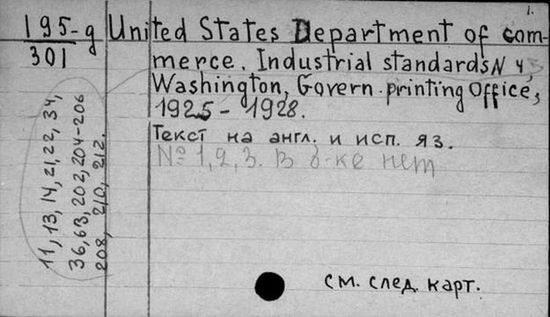 1.
195-g
301
United States Department of com-
merce. Industrial standards N 4,
Washington, Govern. printing Office,
1925 - 1928.
Текст на англ. и исп. яз.
№ 1, 2, 3. В б-ке нет
11, 13, 14, 21, 22, 34,
36, 63, 202, 204-206
208, 210, 212.
см. след. карт.